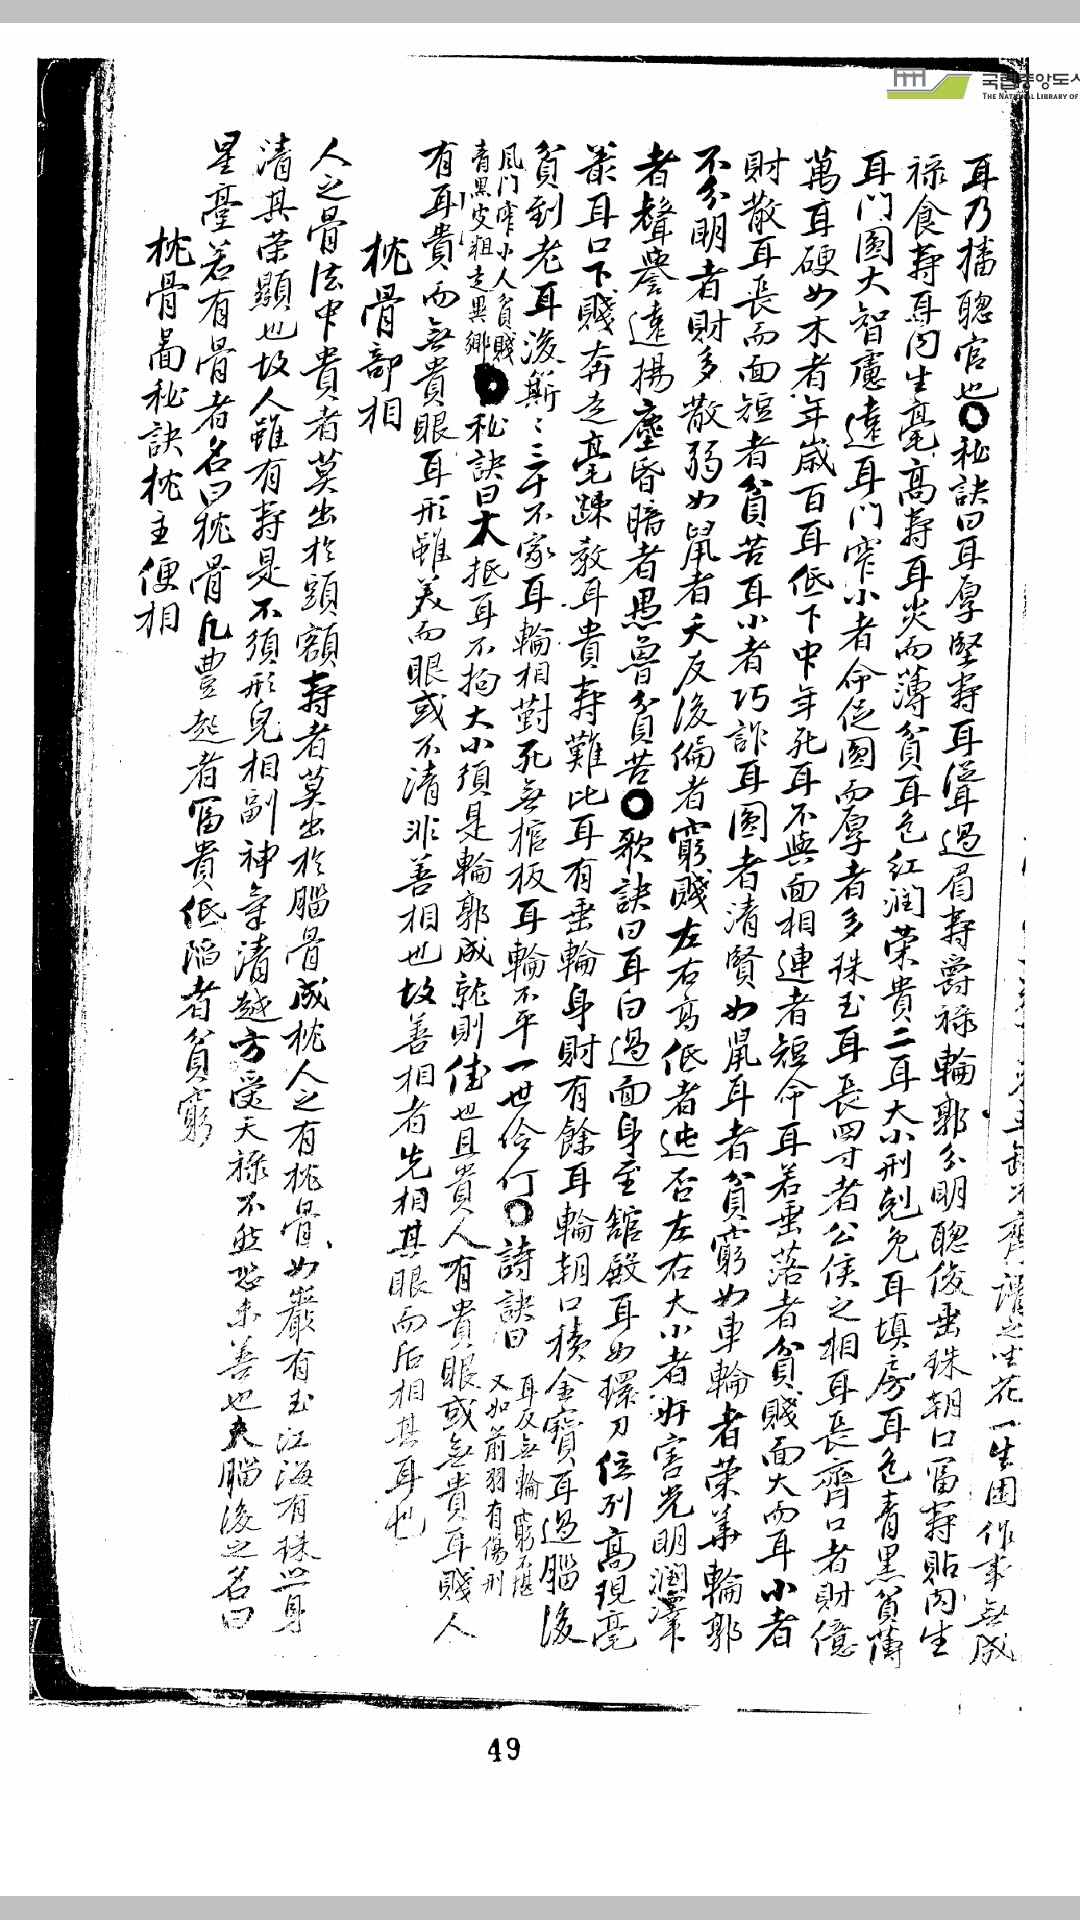 국립중앙도서
THE NATIONAL LIBRARY OF
花一生困作事無成
耳乃播聰官也〇秘訣曰耳厚堅壽耳聳過眉壽爵祿輪郭分明聰俊垂珠朝口富壽貼肉生
祿食壽耳內生毫高壽耳炎而薄貧耳色紅潤榮貴二耳大小刑剋免耳填房耳色青黑貧薄
耳門圓大智慮遠耳門窄小者命促圓而厚者多珠玉耳長四寸者公侯之相耳長齊口者財億
萬耳硬如木者年歲百耳低下中年死耳不與面相連者短命耳若垂落者貧賤面大而耳小者
財散耳長而面短者貧苦耳小者巧詐耳圓者清賢如鼠耳者貧窮如車輪者榮華輪郭
不分明者財多散弱如鼠者夭反後偏者窮賤左右高低者迍否左右大小者妨害光明潤澤
者聲譽遠揚塵昏暗者愚魯貧苦〇歌訣曰耳白過面身至舘殿耳如環刀位列高現毫
叢耳口下賤奔走毫踈教耳貴壽難比耳有垂輪身財有餘耳輪朝口積金寶耳過腦後
貧到老耳後斯〻三千不家耳輪相對死無棺板耳輪不平一世伶仃〇詩訣曰 耳反無輪窮不堪
又如箭羽有傷刑
風門窄小人貧賤
青黑皮粗走異鄉〇秘訣曰大抵耳不拘大小須是輪郭成就則佳也且貴人有貴眼或無貴耳賤人
有耳貴而無貴眼耳形雖美而眼或不清非善相也故善相者先相其眼而后相其耳也
枕骨部相
人之骨法中貴者莫出於頭額壽者莫出於腦骨成枕人之有枕骨如巖有玉江海有珠一身
清其榮顯也故人雖有壽是不須形皃相副神氣清越方受天祿不然恐未善也夫腦後之名曰
星臺若有骨者名曰枕骨凡豊起者富貴低陷者貧窮
枕骨啚秘訣枕主便相
49